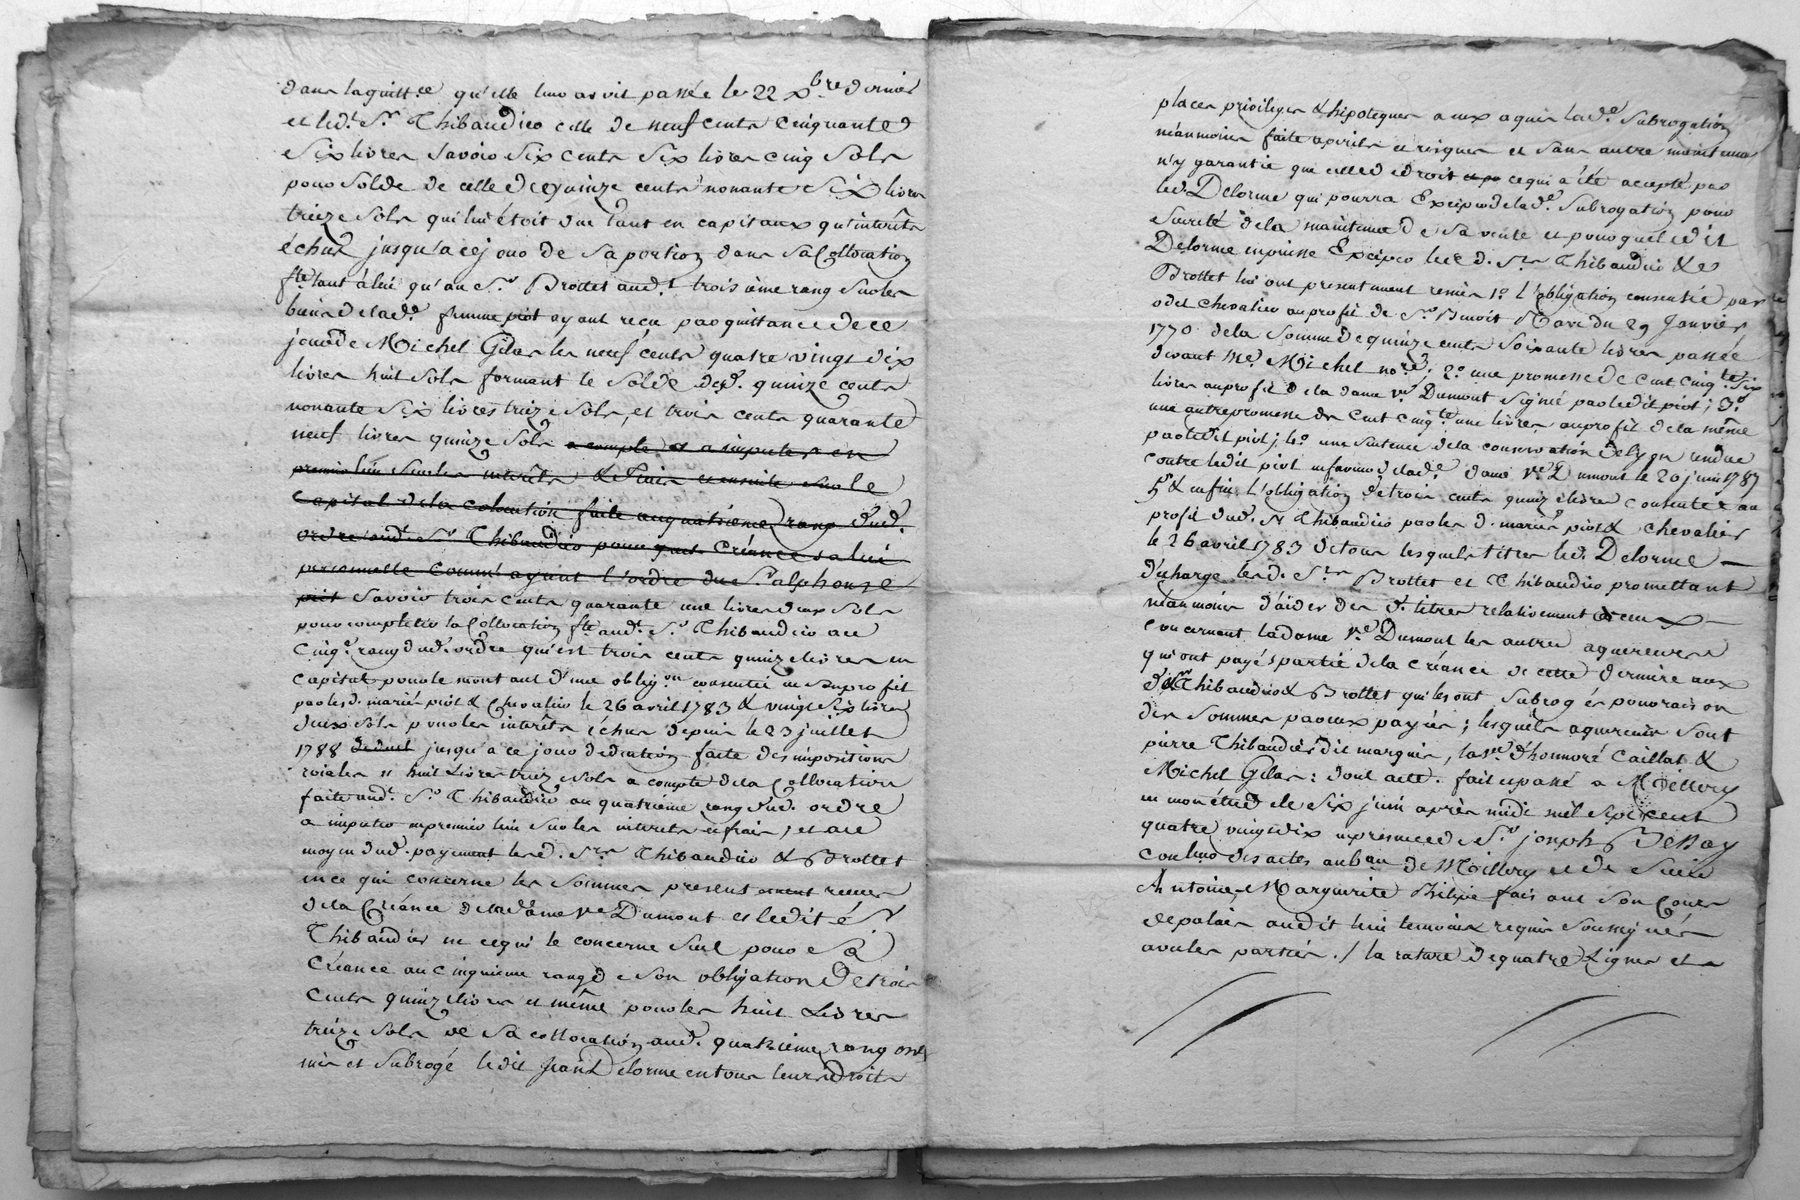 dans la quitt.ce qu'elle luy avoit passée le 22 Xbre dernier
et led.t S.r Thibaudier celle de neuf cents cinquante
six livres savoir six cents six livres cinq sols
pour solde de celle de quinze cents nonante six livres
treize sols qui lui étoit due tant en capitaux qu'intérêts
échus jusqu'a ce jour de sa portion dans sa Collocation
f.te tant à lui qu'au S.r Brottet aud.t troisième rang sur les
biens de lad.e femme piot ayant reçu par quittance de ce
jour de Michel Gilas les neuf cents quatre vingt dix
livres huit sols formant le solde desd. quinze cents
nonante six livres treize sols, et trois cents quarante
neuf livres quinze sols a compte et a imputer en
premier lieu sur les intérêts & frais et ensuite sur le
capital de la colocation faite au quatrieme rang dud.
ordre aud. S.r Thibaudier pour créance a lui
personnelle comm' ayant l'ordre du S.r alphonse
piot savoir trois cents quarante une livres deux sols
pour completter la Collocation f.te aud.t S.r Thibaudier au
cinq.e rang dud. ordre qui est trois cents quinze livres en
capital pour le montant d'une oblig.on consentie en son profit
par les d. mariés piot & Chevalier le 26 avril 1783 & vingt six livres
deux sols pour les intérêts échus depuis le 23 juillet
1788 jusqu'a ce jour deduction faite des impositions
roiales et huit livres treize sols a compte de la Collocation
faite aud.t S.r Thibaudier au quatrième rang dud. ordre
a imputer en premier lieu sur les interets et frais; et au
moyen dud. payement les d. S.rs Thibaudier & Brottet
en ce qui concerne les sommes presentement reçues
de la Créance de la dame v.e Dumont et ledit S.r
Thibaudier en ce qui le concerne seul pour sa
Créance au cinquieme rang de son obligation de trois
cents quinze livres et même pour les huit Livres
treize sols de sa collocation aud. quatrième rang ont
mis et subrogé ledit Jean Delorme en tous leurs droits
places privileges & hipoteques aux aquis lad.e subrogation
néanmoins faite a perils et risques et sans autre maintenue
n'y garantie que celle de droit ce qui a été accepté par
led. Delorme qui pourra Exciper de lad.e subrogation pour
sureté de la maintenue de sa vente et pour que ledit
Delorme en puisse Exciper les d. S.rs Thibaudier & 
Brottet lui ont presentement remis 1.o l'obligation consentie par
odet chevalier au profit de S.r Benoit Mare du 29 Janvier
1770 de la somme de quinze cents soixante livres passée
devant M.e Michel no.re; 2.o une promesse de cent cinq.te six
livres au profit de la dame v.e Dumont signée par ledit piot; 3.o
une autre promesse de cent cinq.te une livres au profit de la même
par ledit piot; 4.o une sentence de la conservation de lyon rendue
contre ledit piot en faveur de lad.e dame v.e Dumont le 20 juin 1787
5.o & enfin l'obligation de trois cents quinze livres consentie au
profit dud. S.r Thibaudier par les d. mariés piot & chevalier
le 26 avril 1783 de tous lesquels titres led. Delorme
décharge les d. S.rs Brottet et Thibaudier promettant
néanmoins d'aider des d. titres relativement a ceux
concernant la dame v.e Dumont les autres aquereurs
qui ont payés partie de la créance de cette derniere aux
d. S.rs Thibaudier & Brottet qui les ont subrogés pour raison
des sommes par eux payées; lesquels aquereurs sont
pierre Thibaudier dit marquis, la v.e d'honnoré Caillat &
Michel Gilas: dont acte. fait et passé a Moëllery
en mon étude le six juin après midi mil sept cent
quatre vingt dix en presence de S.r joseph Bessay
Contrôleur des actes au bau de Moillery et de Sieur
Antoine Marguerite Philipe fais ant son Cours
de palais audit lieu temoins requis soussignés
avec les parties ./ la rature de quatre Lignes et